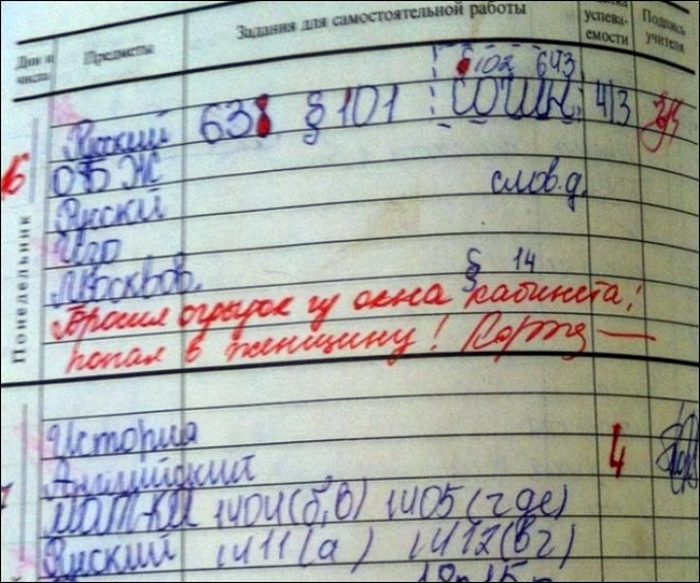 Дни и числа Предметы Задания для самостоятельной работы успева-
емости Подпись учителя
§102 643
Русский 638 § 101 сочин. 4/3
16
ОБЖ
Русскй слов.д.
Изо
Москвов. § 14
Понедельник
Бросил огрызок из окна кабинета,
попал в женщину!
История
Английский 4
МАТ-КА 1404(б,в) 1405(где)
Русский 1411(а) 1412(вг)